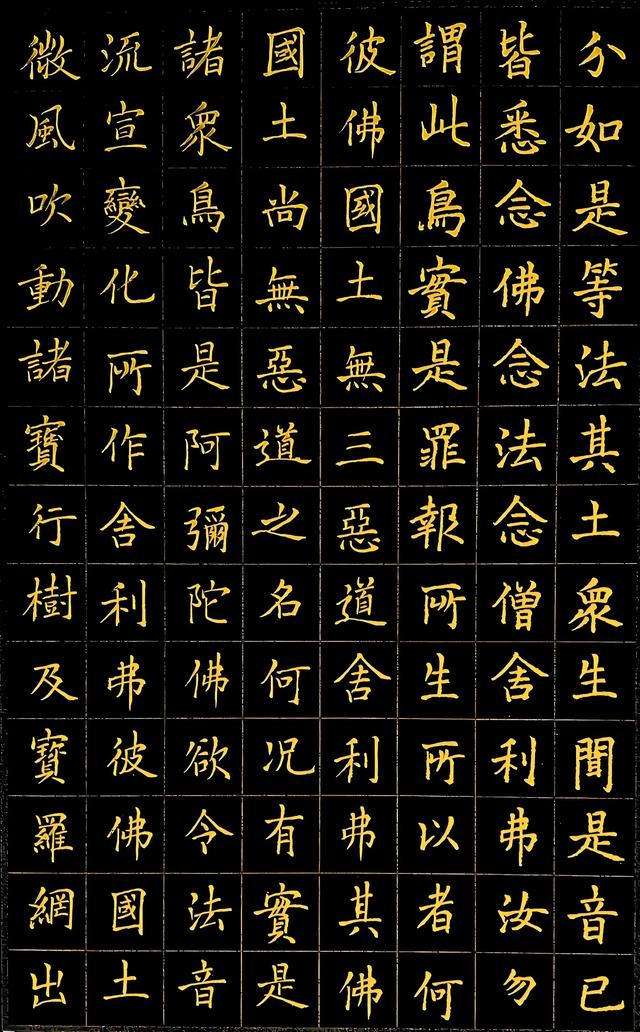 分如是等法其土衆生聞是音已
皆悉念佛念法念僧舍利弗汝勿
謂此鳥實是罪報所生所以者何
彼佛國土無三惡道舍利弗其佛
國土尚無惡道之名何况有實是
諸衆鳥皆是阿彌陀佛欲令法音
流宣變化所作舍利弗彼佛國土
微風吹動諸寶行樹及寶羅網出